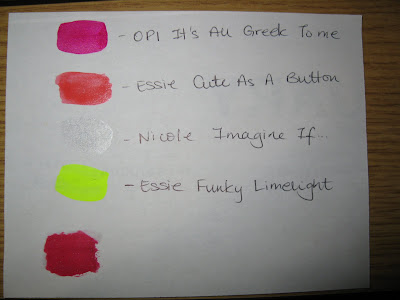 - OPI It's All Greek To me
- Essie Cute As A Button
- Nicole Imagine If...
- Essie Funky Limelight